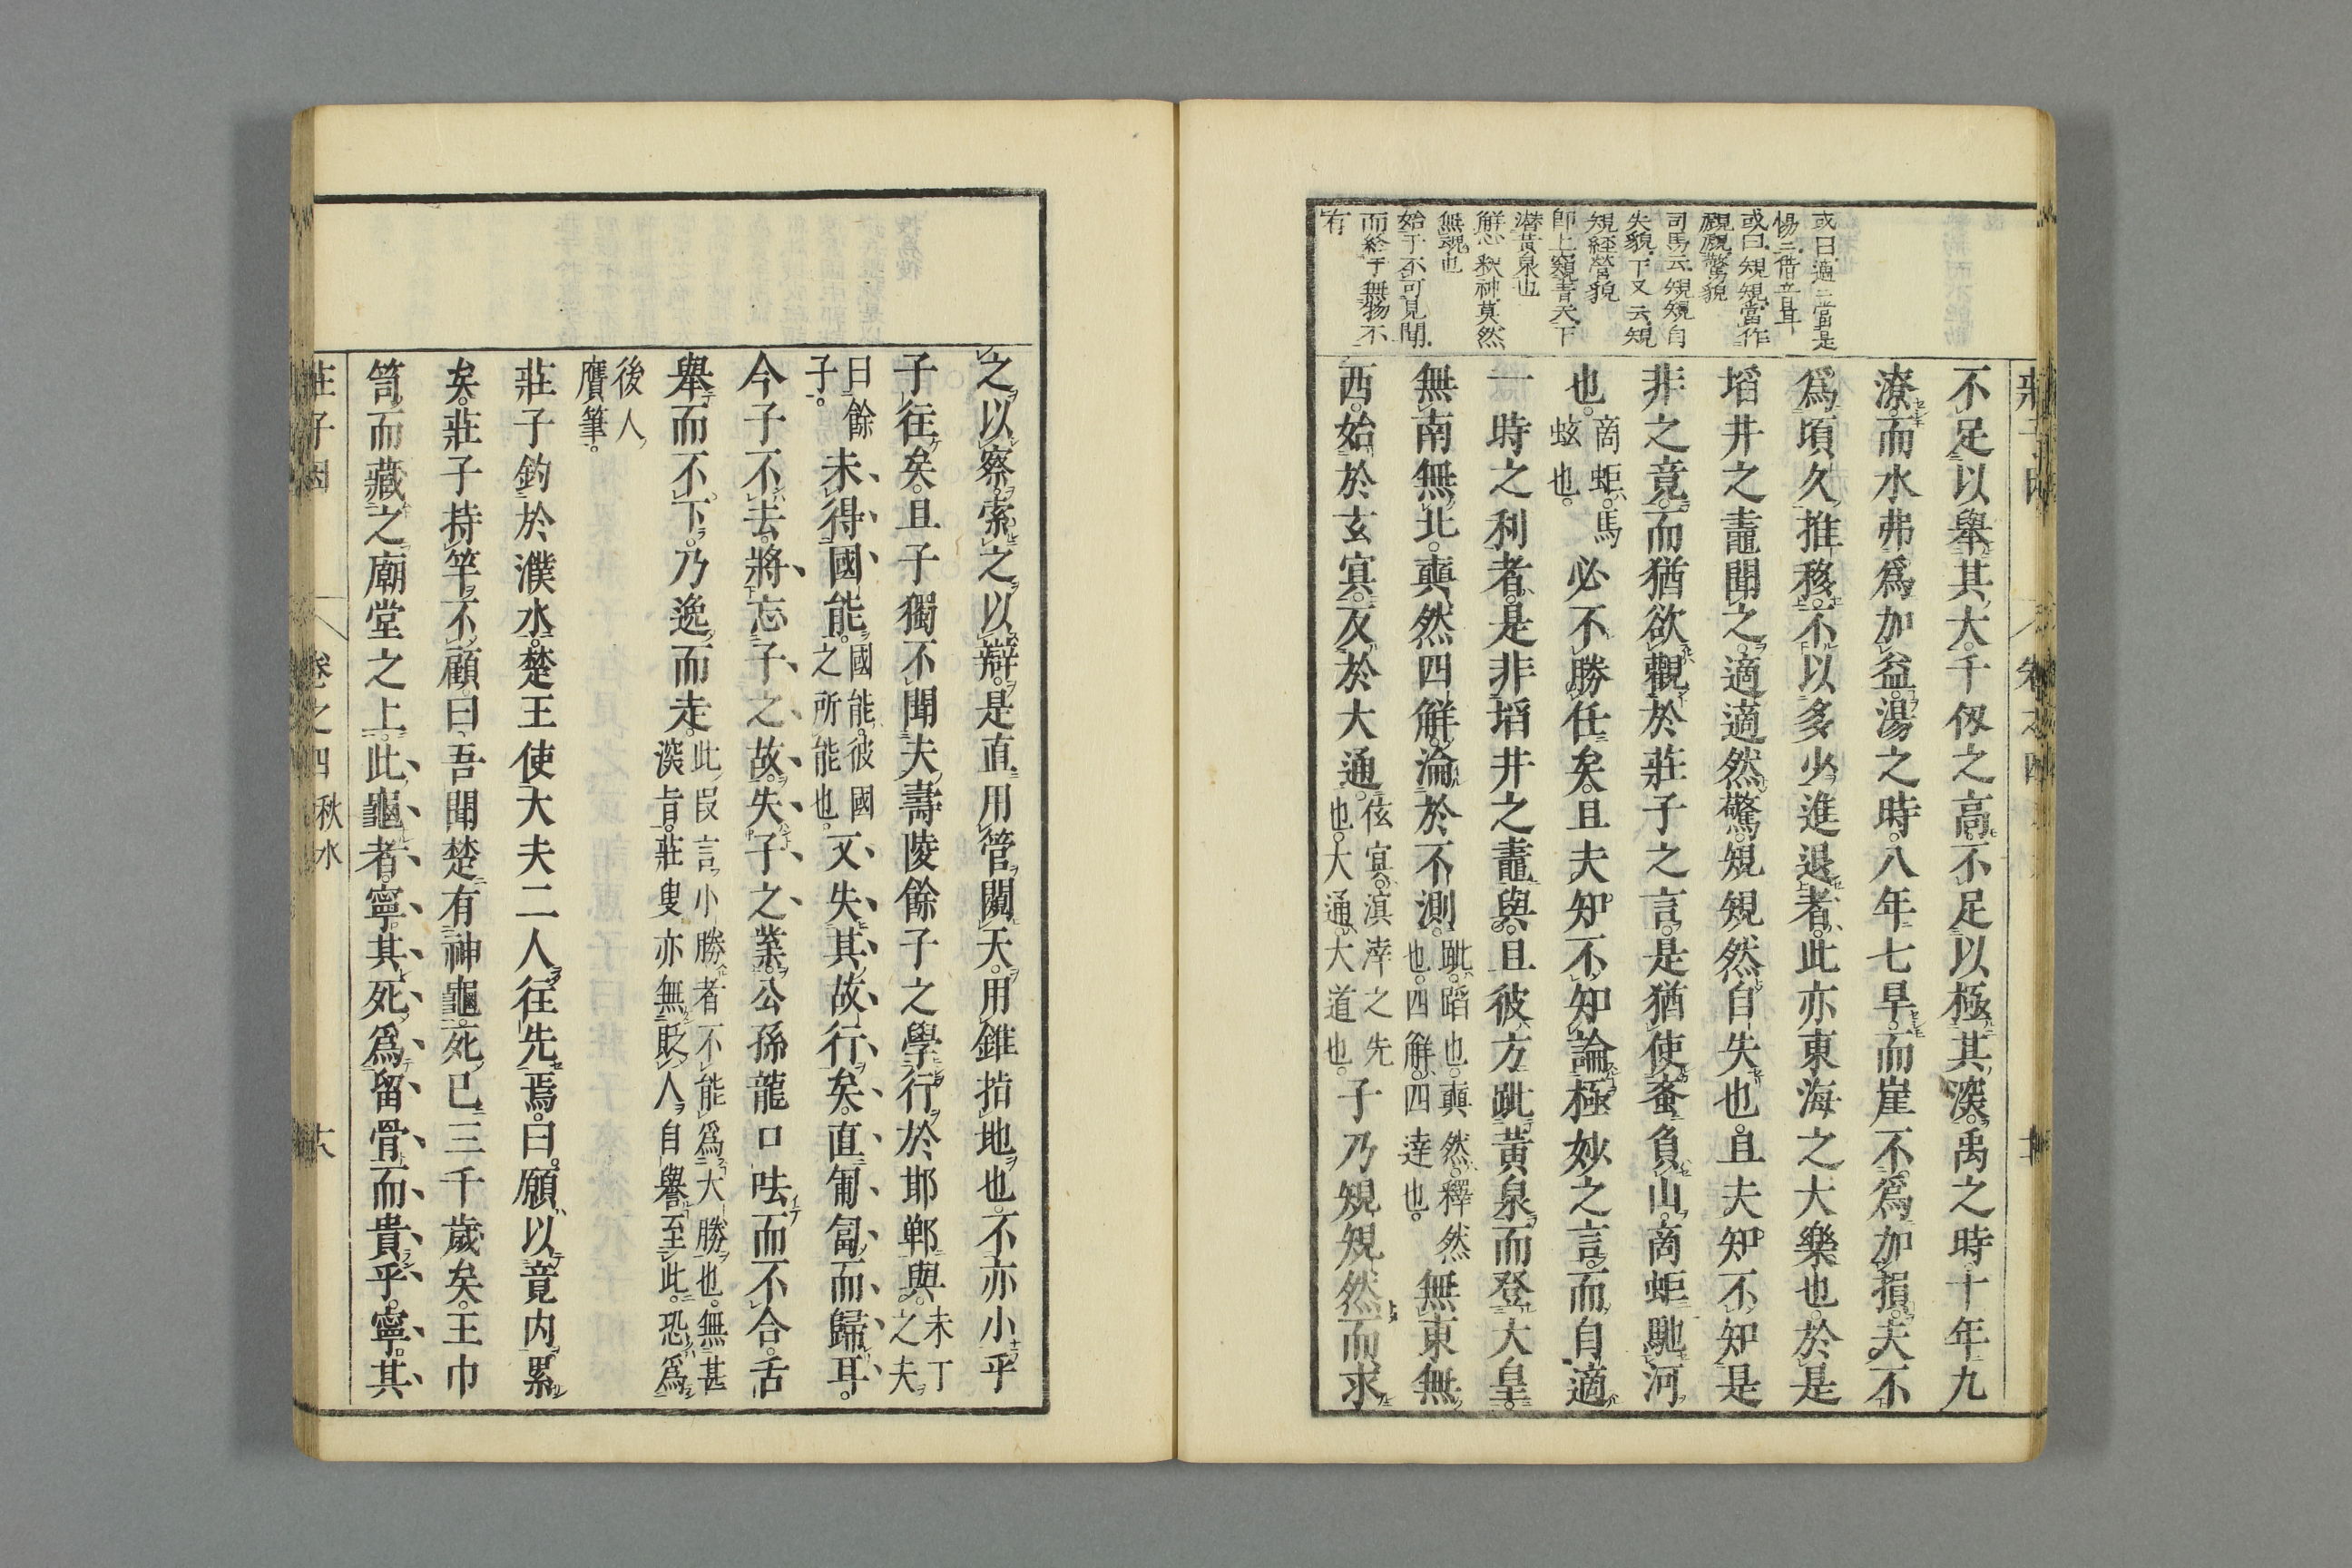 不足以舉其大千仞之高不足以極其深禹之時十年九
潦而水弗爲加益湯之時八年七旱而崖不爲加損夫不
爲頃久推移不以多少進退者此亦東海之大樂也於是
埳井之鼃聞之適適然驚規規然自失也且夫知不知是
非之竟而猶欲觀於莊子之言是猶使蚉負山商蚷馳河
也
商蚷馬
蚿也
必不勝任矣且夫知不知論極妙之言而自適
一時之利者是非埳井之鼃與且彼方跐黃泉而登大皇
無南無北奭然四解淪於不測
跐蹈也奭然釋然
也四解四達也
無東無
西始於玄冥反於大通
伭冥滇涬之先
也大通大道也
子乃規規然而求
或曰適二當是
惕二借音耳
或曰規規當作
覷覷驚貌
司馬云規規自
失貌下又云規
規經營貌
卽上窺靑天下
潛黃泉也
解心釈神莫然
無魂也
始于不可見聞
而終于無物不
有
之以察索之以辯是直用管闚天用錐指地也不亦小乎
子往矣且子獨不聞夫壽陵餘子之學行於邯鄲與
未丁
之夫
曰餘
子
未得國能
國能彼國
之所能也
又失其故行矣直匍匐而歸耳
今子不去將忘子之故失子之業公孫龍口呿而不合舌
舉而不下乃逸而走
此段言小勝者不能爲大勝也無甚
深旨莊叟亦無貶人自譽至此恐爲
後人
贋筆
莊子釣於濮水楚王使大夫二人往先焉曰願以竟內累
矣莊子持竿不顧曰吾聞楚有神龜死已三千歲矣王巾
笥而藏之廟堂之上此龜者寧其死爲留骨而貴乎寧其
莊子因 卷之四 秋水